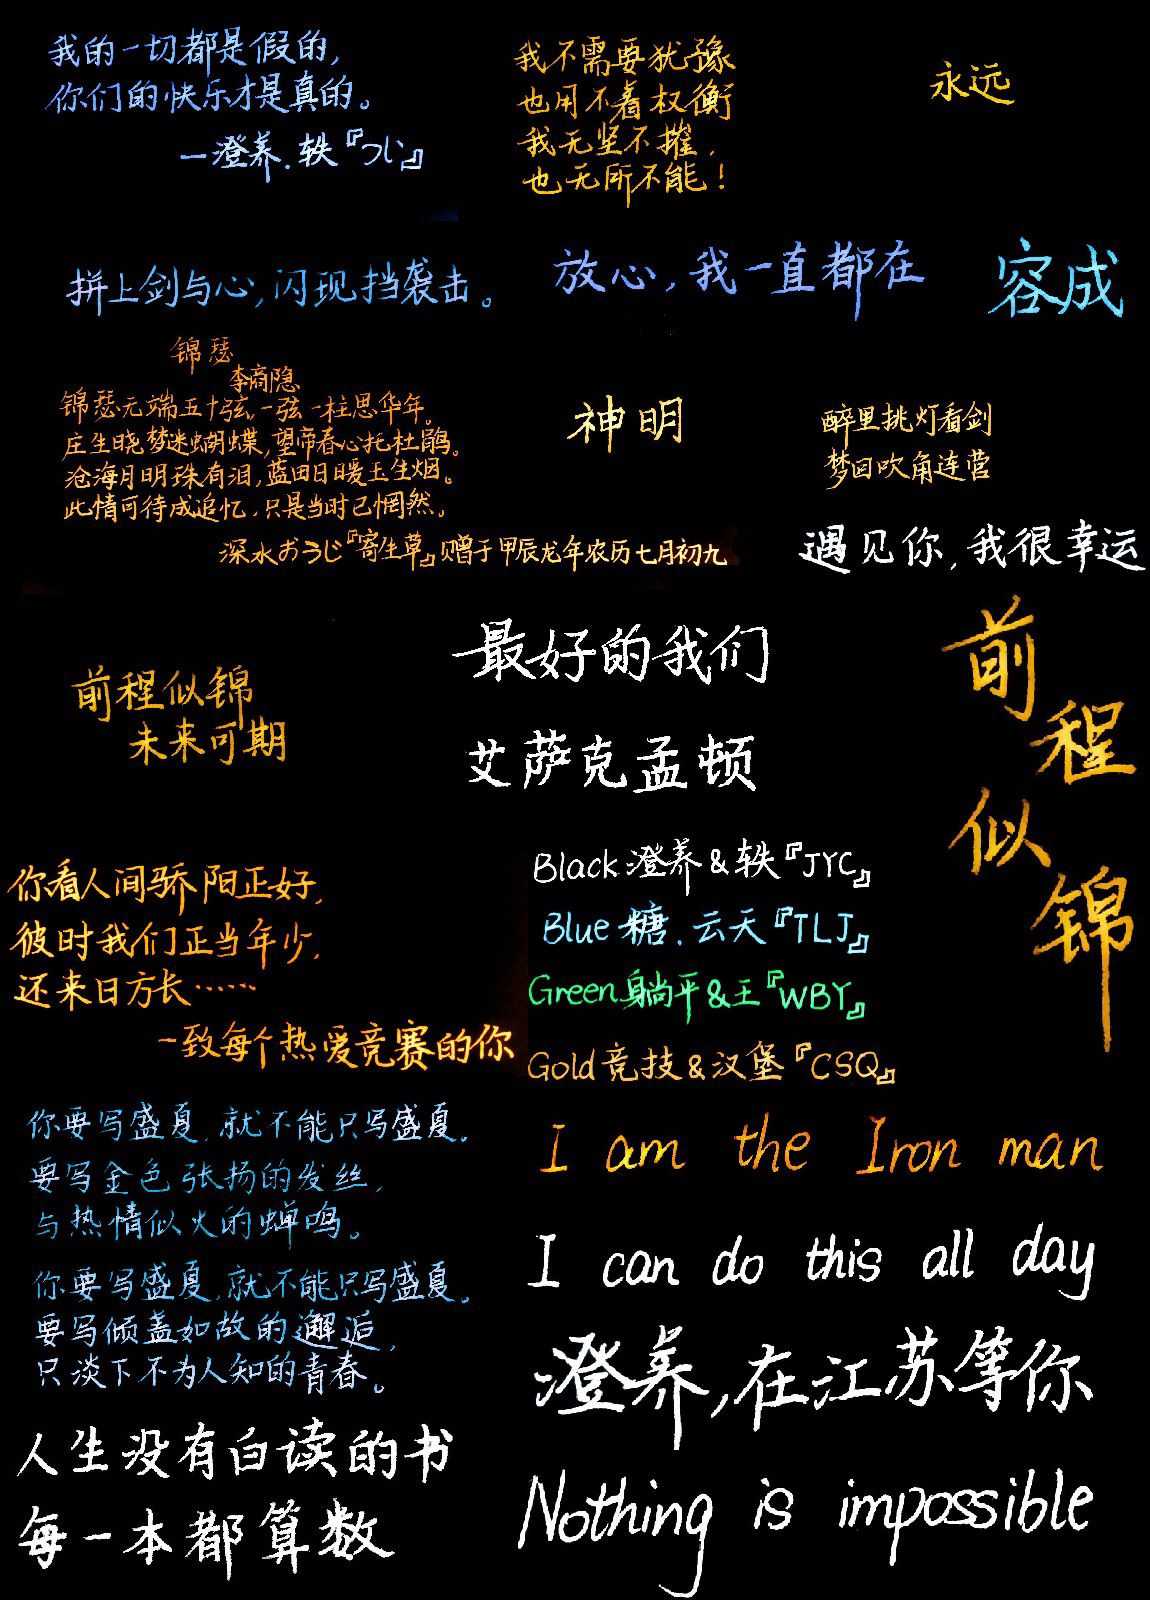 我的一切都是假的，
你们的快乐才是真的。
一澄养.轶『つじ』
我不需要犹豫
也用不着权衡
我无坚不摧，
也无所不能！
永远
拼上剑与心，闪现挡袭击。
放心，我一直都在
容成
锦瑟
李商隐
锦瑟无端五十弦，一弦一柱思华年。
庄生晓梦迷蝴蝶，望帝春心托杜鹃。
沧海月明珠有泪，蓝田日暖玉生烟。
此情可待成追忆，只是当时已惘然。
深水おうじ『寄生草』贝赠于甲辰龙年农历七月初九
神明
醉里挑灯看剑
梦回吹角连营
遇见你，我很幸运
前程似锦
未来可期
最好的我们
艾萨克孟顿
前
程
似
锦
你看人间骄阳正好，
彼时我们正当年少，
还来日方长……
一致每个热爱竞赛的你
Black 澄养&轶『JYC』
Blue 糖.云天『TLJ』
Green 躺平&王『WBY』
Gold 竞技&汉堡『CSQ』
你要写盛夏，就不能只写盛夏。
要写金色张扬的发丝，
与热情似火的蝉鸣。
你要写盛夏，就不能只写盛夏。
要写倾盖如故的邂逅，
只淡下不为人知的青春。
I am the Iron man
I can do this all day
澄养，在江苏等你
Nothing is impossible
人生没有白读的书
每一本都算数